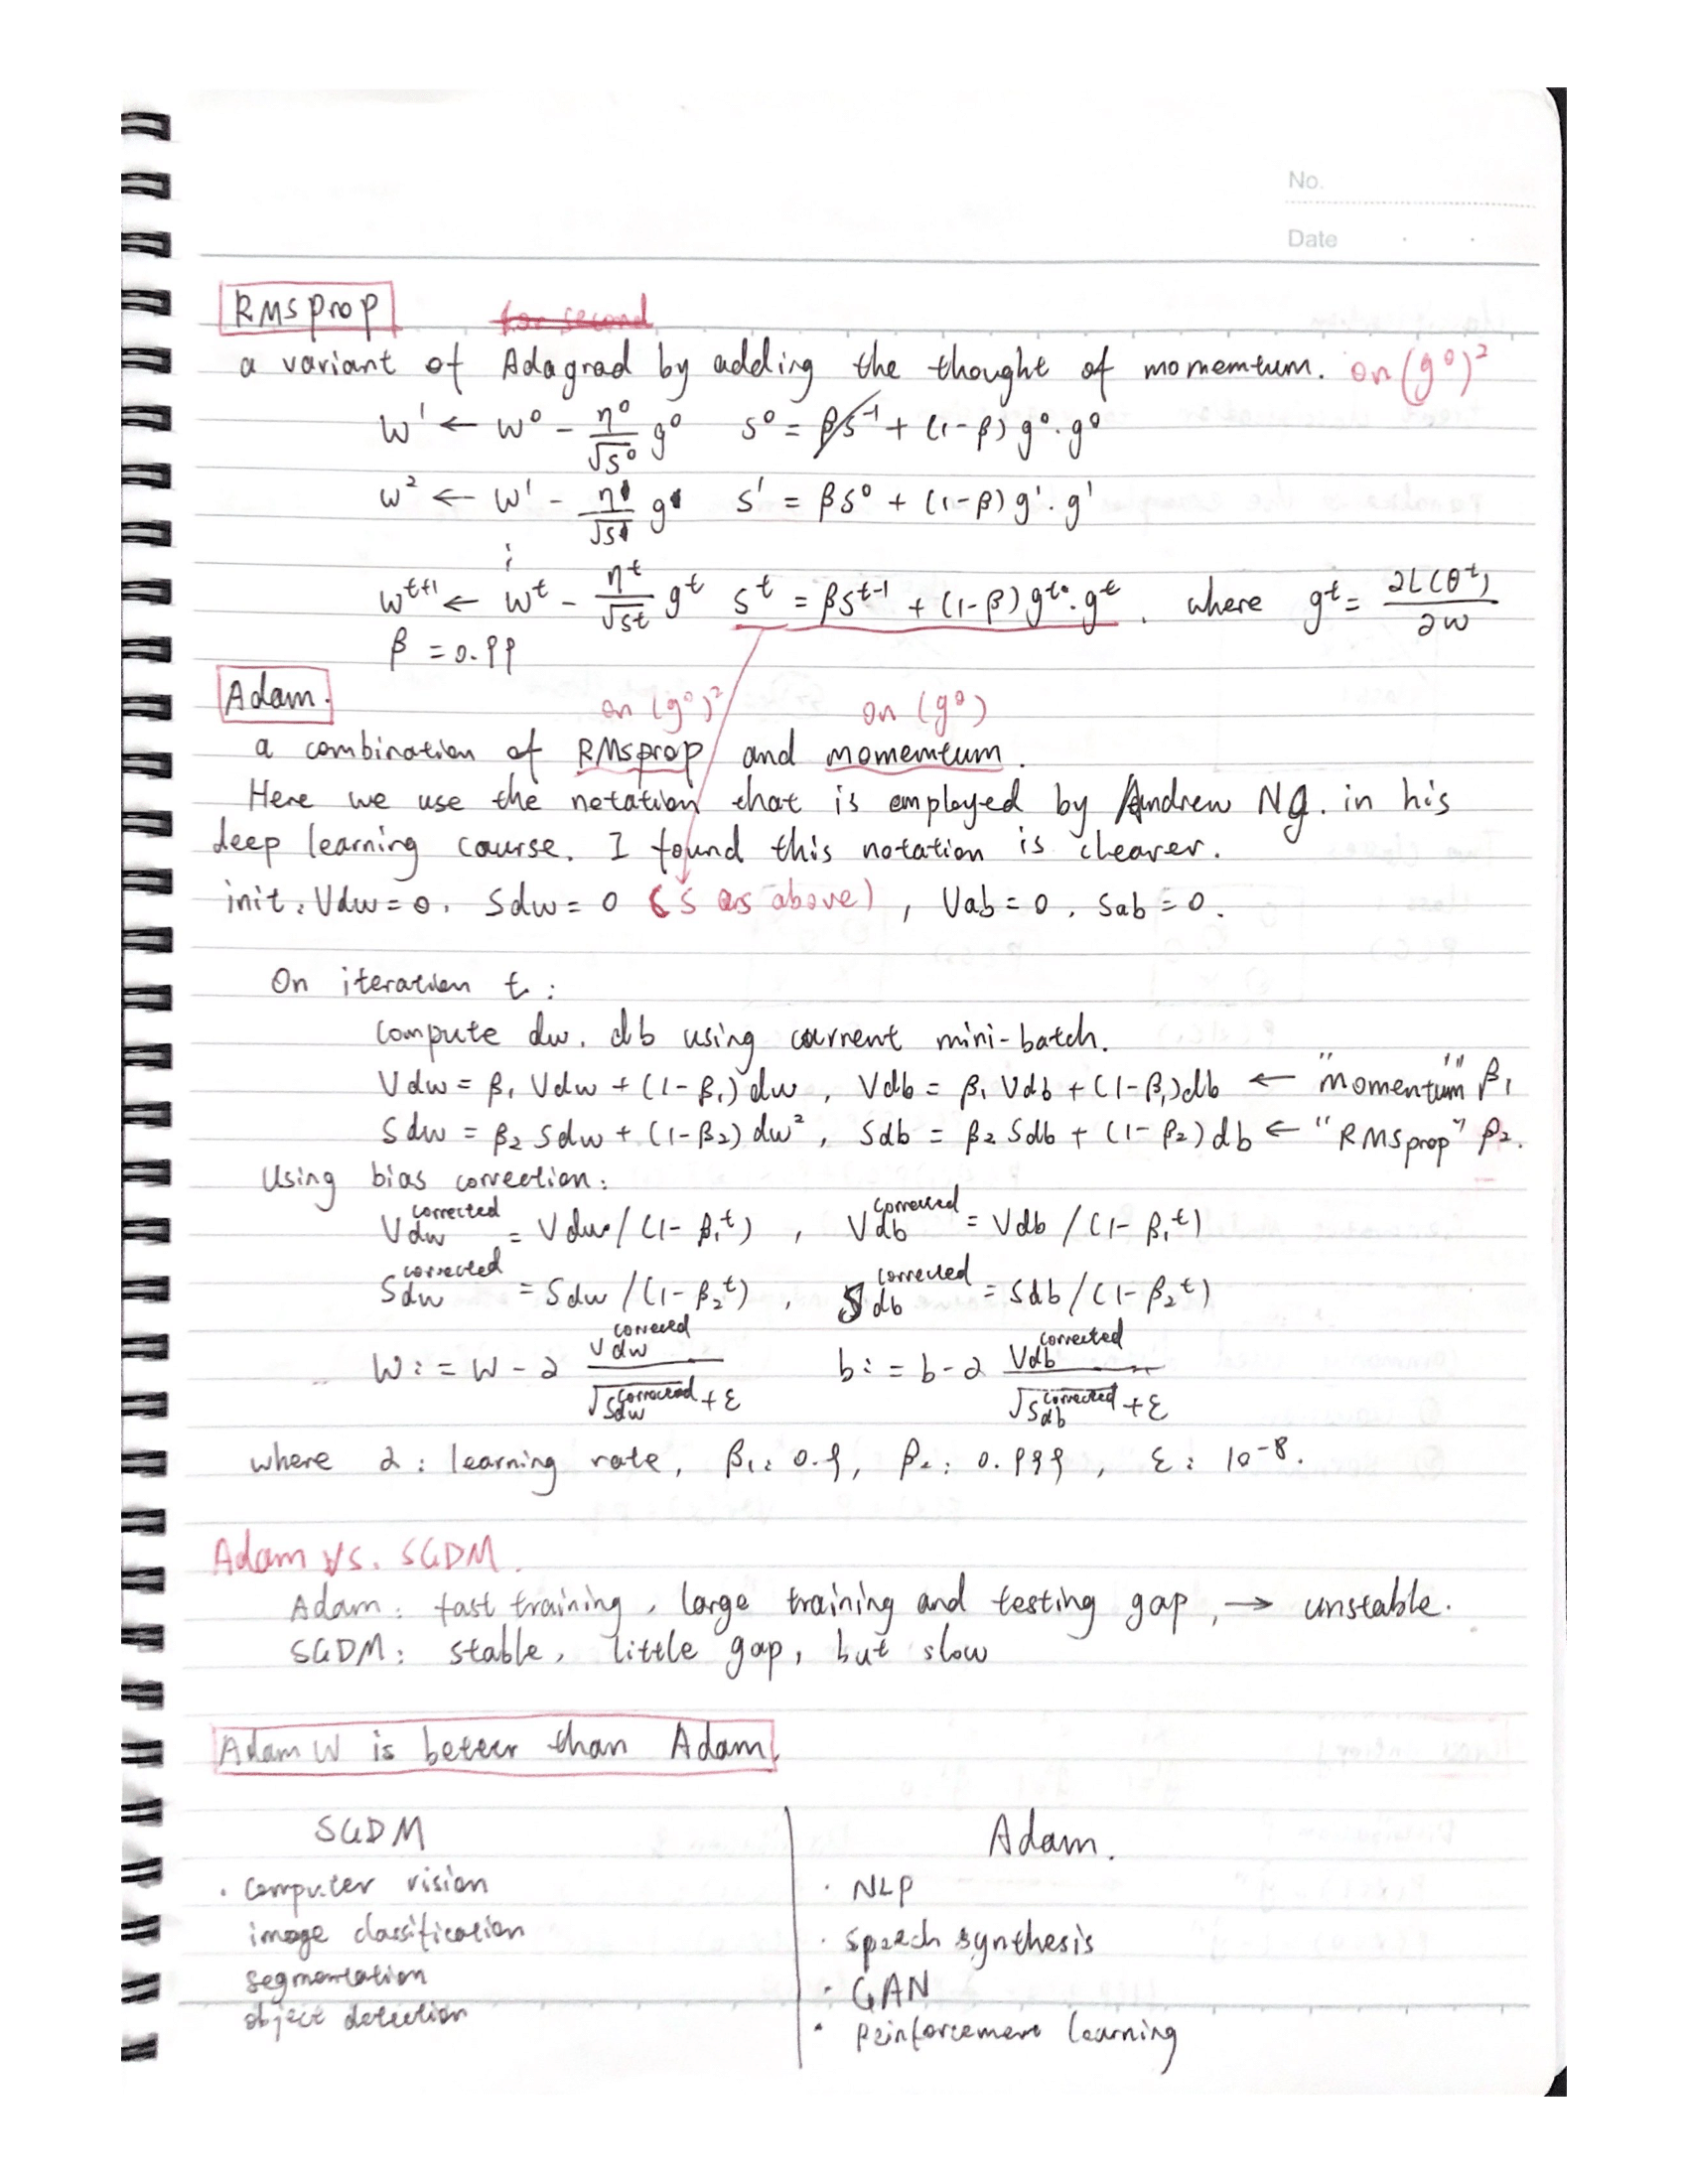 No.
Date
RMSprop
for second
a variant of Adagrad by adding the thought of momemtum. on (g⁰)²
w¹ ← w⁰ - η⁰/√s⁰ g⁰ s⁰ = βs⁻¹ + (1-β) g⁰·g⁰
w² ← w¹ - η¹/√s¹ g¹ s¹ = βs⁰ + (1-β) g¹·g¹
⋮
wᵗ⁺¹ ← wᵗ - ηᵗ/√sᵗ gᵗ sᵗ = βsᵗ⁻¹ + (1-β) gᵗ·gᵗ. where gᵗ = ∂L(θᵗ)/∂w
β = 0.99
Adam.
on (g⁰)² on (g⁰)
a combination of RMSprop and momemtum.
Here we use the notation that is employed by Andrew NG. in his
deep learning course. I found this notation is clearer.
init: Vdw = 0. Sdw = 0 (S as above), Vab = 0. Sab = 0.
On iteration t:
compute dw. db using current mini-batch.
Vdw = β₁ Vdw + (1-β₁) dw, Vdb = β₁ Vdb + (1-β₁) db ← "momentum" β₁
Sdw = β₂ Sdw + (1-β₂) dw², Sdb = β₂ Sdb + (1-β₂) db ← "RMSprop" β₂.
Using bias correction:
Vdw^corrected = Vdw / (1-β₁ᵗ), Vdb^corrected = Vdb / (1-β₁ᵗ)
Sdw^corrected = Sdw / (1-β₂ᵗ), Sdb^corrected = Sdb / (1-β₂ᵗ)
W := W - α Vdw^corrected / √Sdw^corrected + ε b := b - α Vdb^corrected / √Sdb^corrected + ε
where α: learning rate, β₁: 0.9, β₂: 0.999, ε: 10⁻⁸.
Adam vs. SGDM.
Adam: fast training, large training and testing gap, → unstable.
SGDM: stable, little gap, but slow
AdamW is better than Adam.
SGDM
· computer vision
image classification
segmentation
object detection
Adam.
· NLP
· speech synthesis
· GAN
· Reinforcement learning